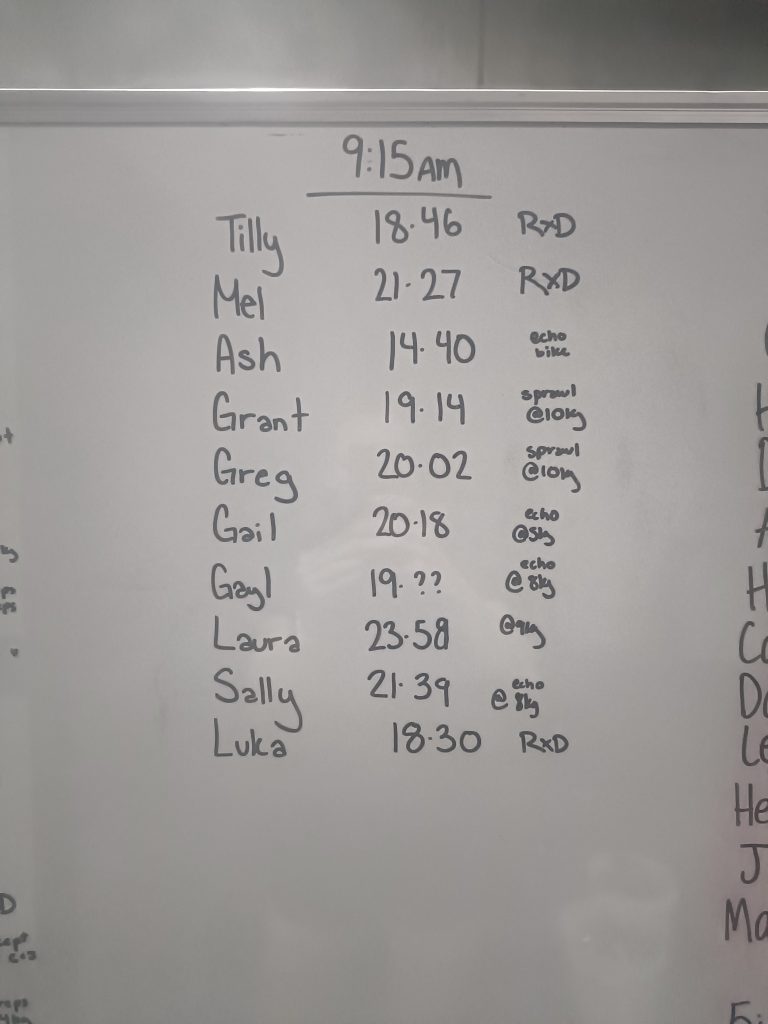 9:15AM
Tilly 18.46 RxD
Mel 21.27 RxD
Ash 14.40 echo bike
Grant 19.14 sprawl @10kg
Greg 20.02 sprawl @10kg
Gail 20.18 echo @5kg
Gayl 19.?? echo @8kg
Laura 23.58 @9kg
Sally 21.39 echo @8kg
Luka 18.30 RxD